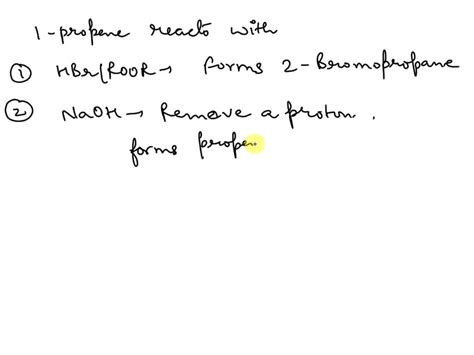 1-propene reacts with
① HBr/ROOR → forms 2-Bromopropane
② NaOH → Remove a proton.
forms prope